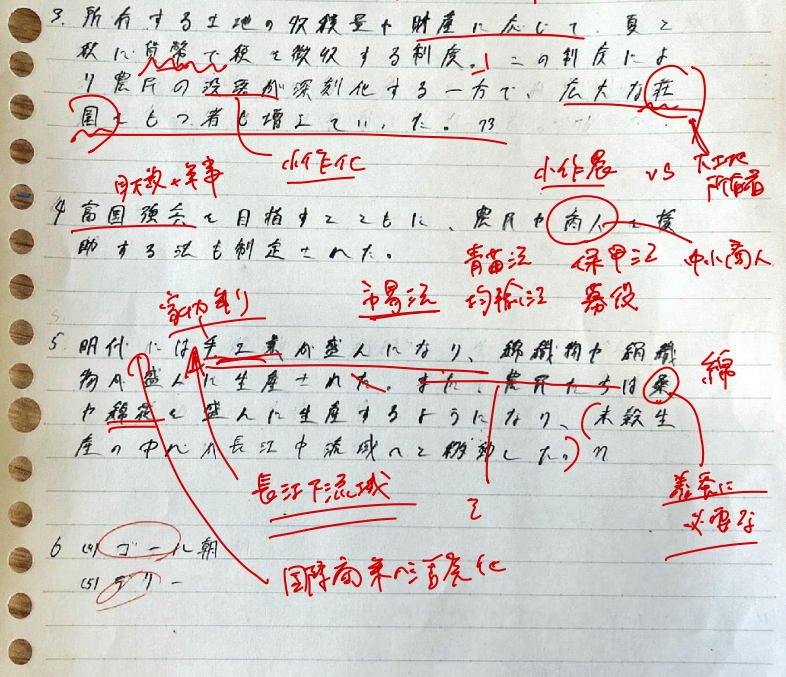 3. 所有する土地の収穫量や財産に応じて、夏と
秋に貨幣で税を徴収する制度。この制度によ
り農民の没落が深刻化する一方で、広大な荘
園をもつ者も増えていった。
小作化
小作農 vs 大土地所有者
4 富国強兵を目指すとともに、農民や商人を援
助する法も制定された。
青苗法 保甲法 中小商人
市易法 均輸法 募役
5. 明代には手工業が盛んになり、綿織物や絹織
物が盛んに生産された。また、農民たちは桑
綿
や綿花を盛んに生産するようになり、(米穀生
産の中心が長江中流域へと移動した。)
長江下流域
養蚕に
必要な
6 (4) ゴール朝
(5) デリー
国際商業の活発化